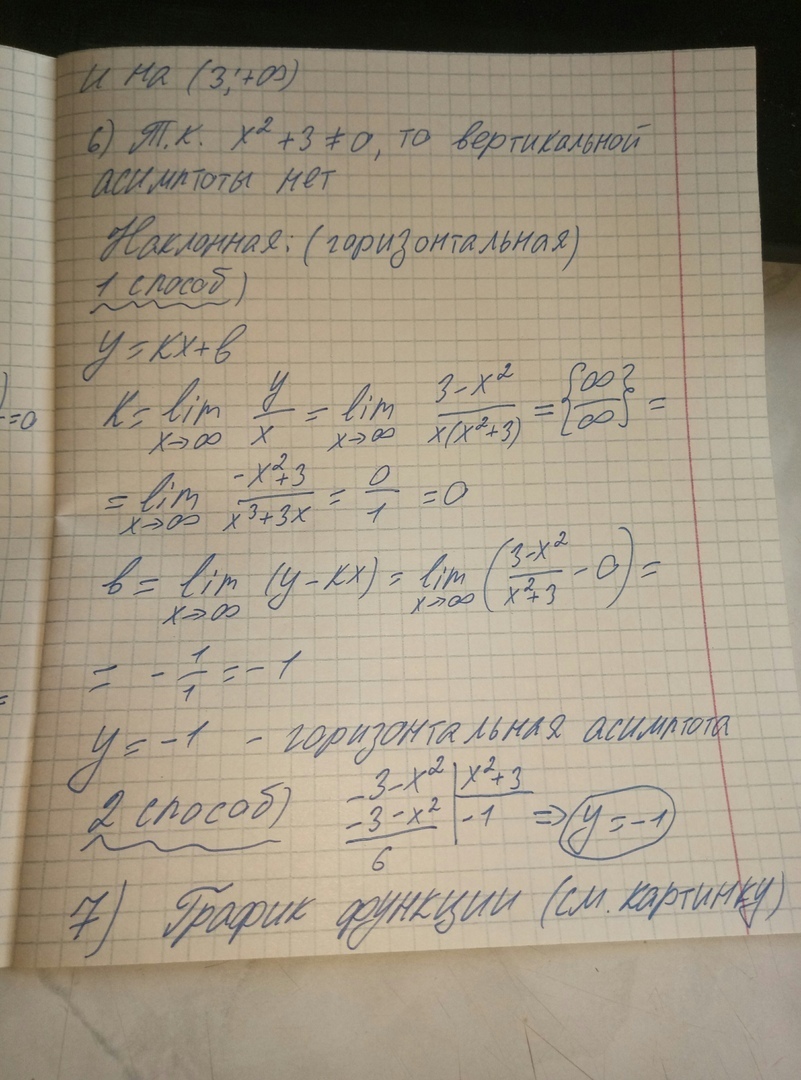 и на (3; +∞)
6) Т.к. x² + 3 ≠ 0, то вертикальной
асимптоты нет
Наклонная: (горизонтальная)
1 способ)
y = kx + b
k = lim x→∞ y/x = lim x→∞ (3 - x²)/(x(x² + 3)) = {∞/∞} =
= lim x→∞ (-x² + 3)/(x³ + 3x) = 0/1 = 0
b = lim x→∞ (y - kx) = lim x→∞ ((3 - x²)/(x² + 3) - 0) =
= - 1/1 = -1
y = -1 - горизонтальная асимптота
2 способ) -3 - x² | x² + 3
-3 - x² | -1 ⇒ y = -1
6
7) График функции (см. картинку)
=0